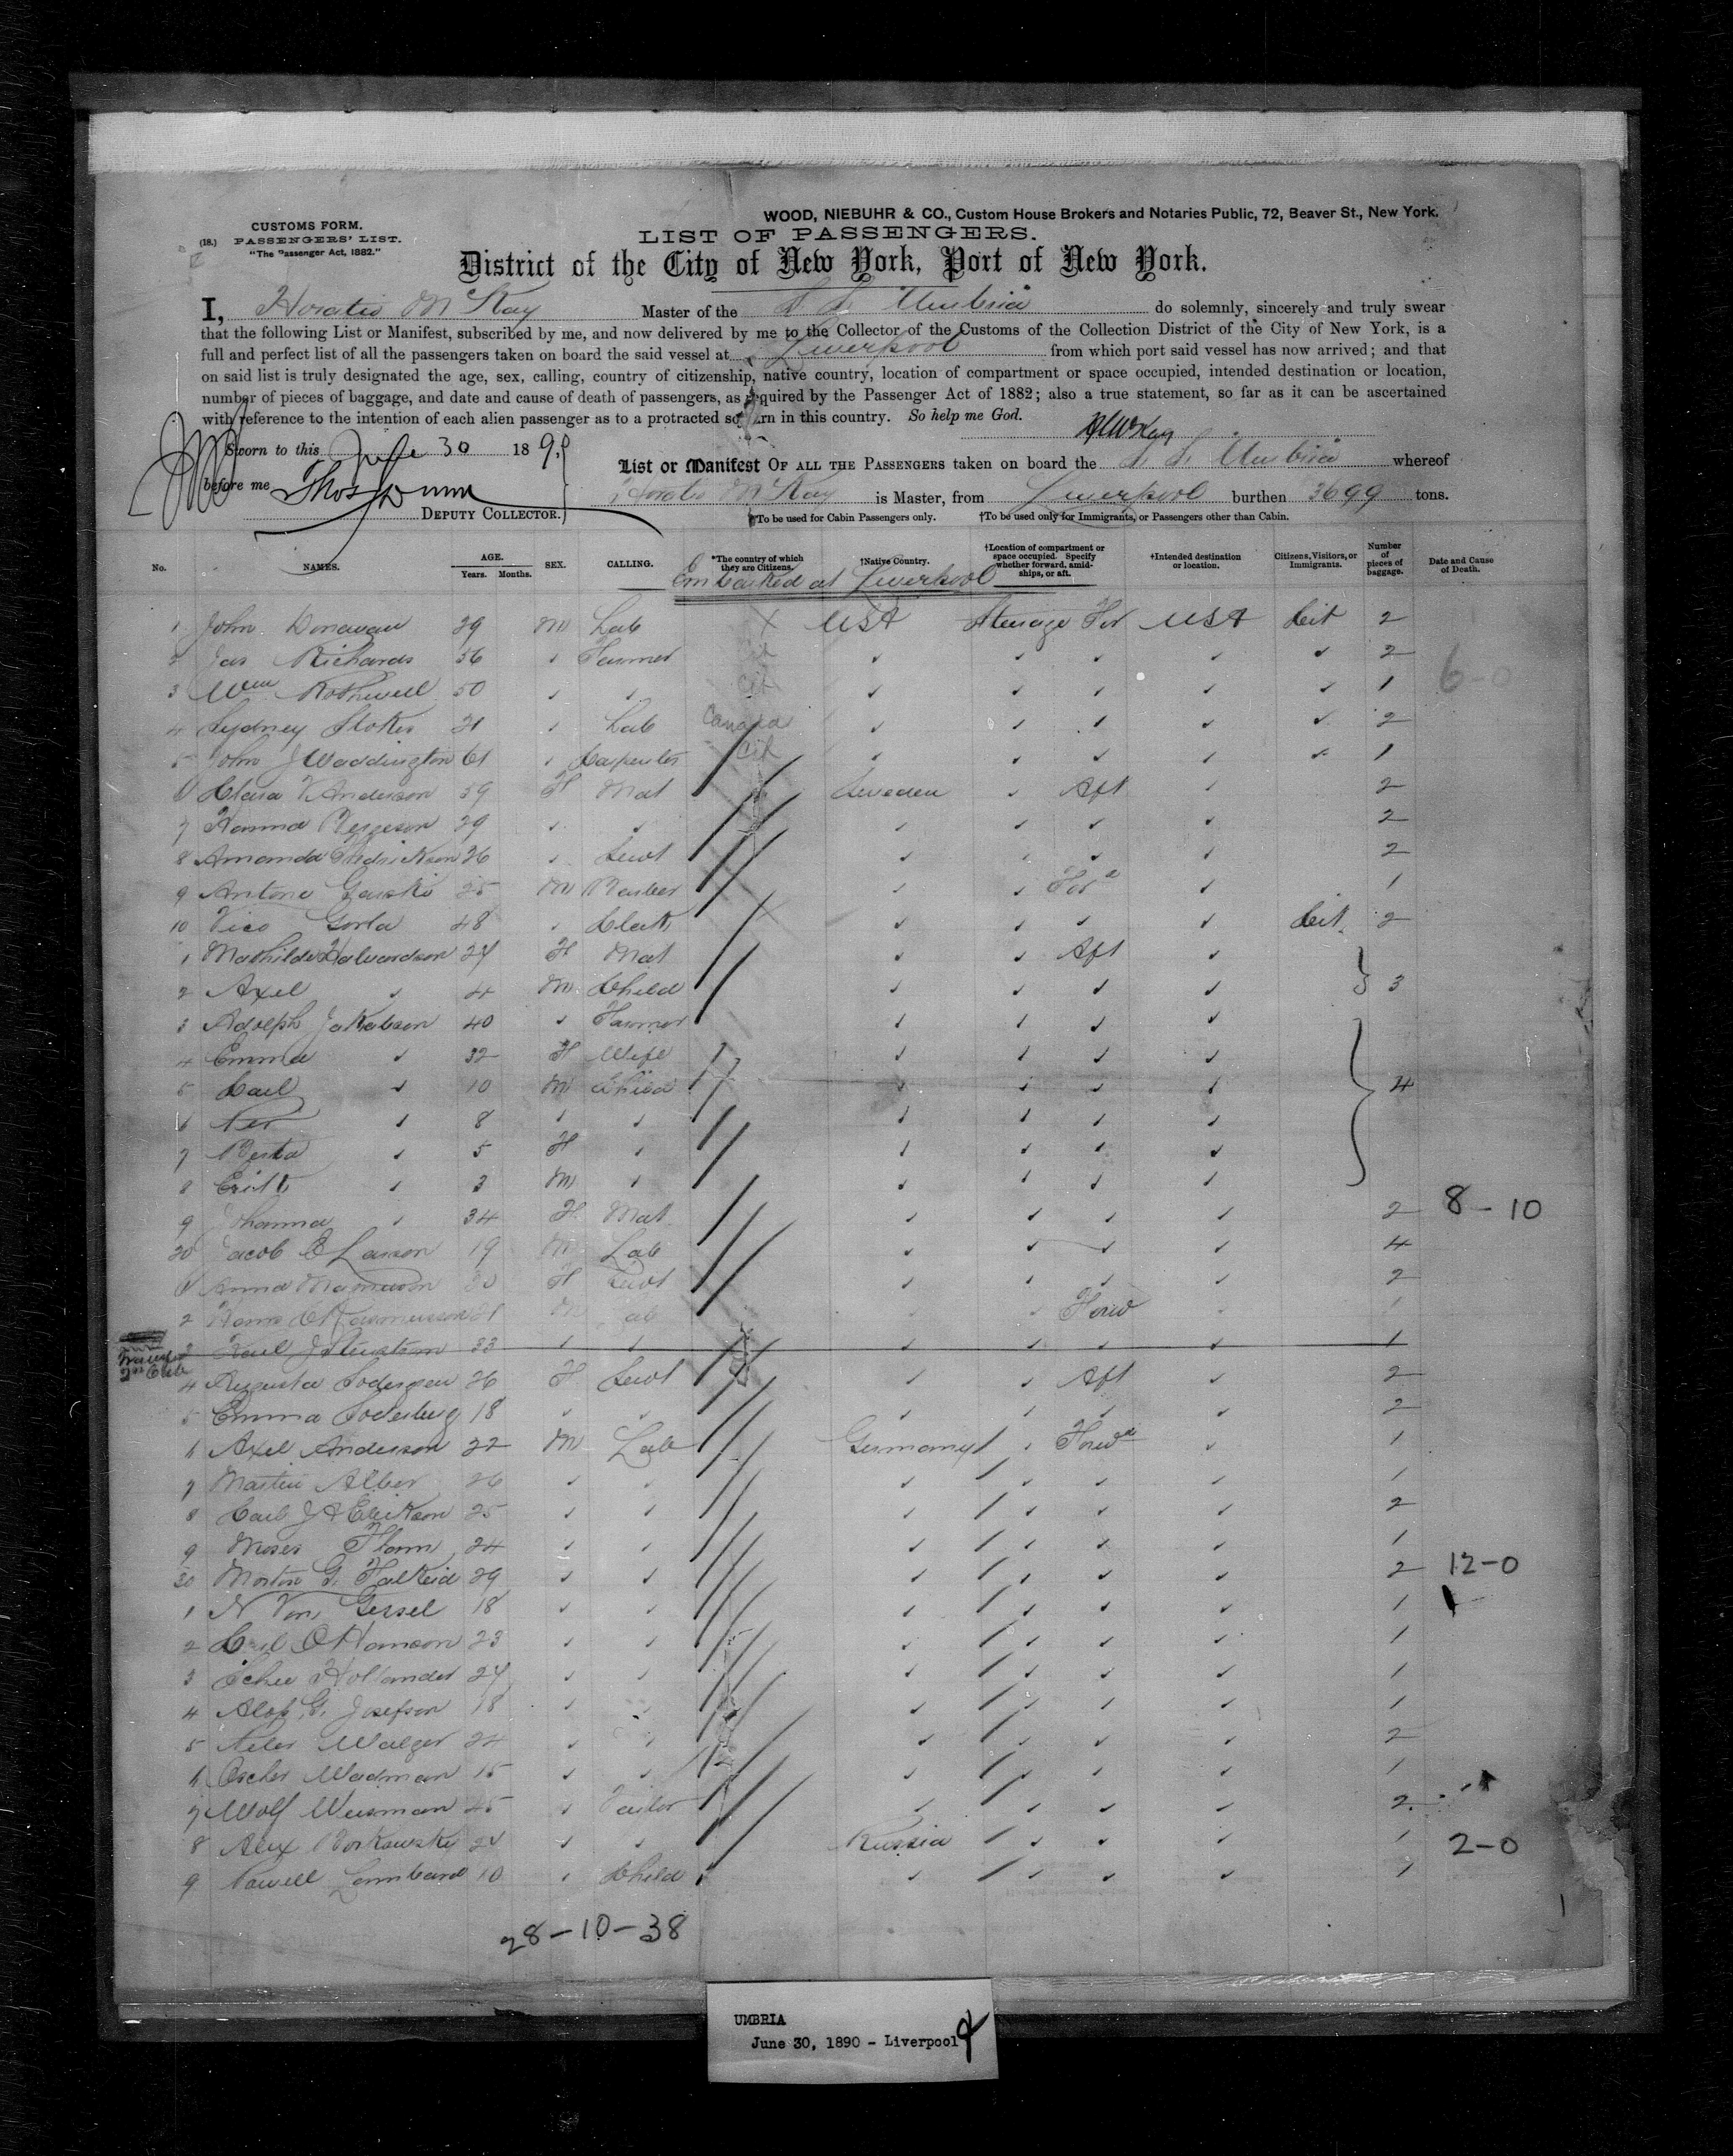 WOOD, NIEBUHR & CO., Custom House Brokers and Notaries Public, 72, Beaver St., New York.
CUSTOMS FORM.
(18.) PASSENGERS' LIST.
"The Passenger Act, 1882."
LIST OF PASSENGERS.
District of the City of New York, Port of New York.
I, Horatio McKay Master of the S. S. "Umbria" do solemnly, sincerely and truly swear
that the following List or Manifest, subscribed by me, and now delivered by me to the Collector of the Customs of the Collection District of the City of New York, is a
full and perfect list of all the passengers taken on board the said vessel at Liverpool from which port said vessel has now arrived; and that
on said list is truly designated the age, sex, calling, country of citizenship, native country, location of compartment or space occupied, intended destination or location,
number of pieces of baggage, and date and cause of death of passengers, as required by the Passenger Act of 1882; also a true statement, so far as it can be ascertained
with reference to the intention of each alien passenger as to a protracted sojourn in this country. So help me God.
Sworn to this June 30 189
before me Thos Dunn
DEPUTY COLLECTOR.
List or Manifest OF ALL THE PASSENGERS taken on board the S. S. Umbria whereof
Horatio McKay is Master, from Liverpool burthen 3699 tons.
*To be used for Cabin Passengers only. †To be used only for Immigrants, or Passengers other than Cabin.
No. NAMES. AGE. Years. Months. SEX. CALLING. *The country of which they are Citizens. †Native Country. †Location of compartment or space occupied. Specify whether forward, amidships, or aft. †Intended destination or location. Citizens, Visitors, or Immigrants. Number of pieces of baggage. Date and Cause of Death.
Embarked at Liverpool
1 John Donavan 29 M Lab X USA Steerage For USA Cit 2
2 Jas Richards 56 ✓ Farmer Cit ✓ ✓ ✓ ✓ ✓ 2
3 Wm Rothwell 50 ✓ ✓ Cit ✓ ✓ ✓ ✓ ✓ 1 6-0
4 Sydney Stokes 21 ✓ Lab Canada ✓ ✓ ✓ ✓ ✓ 2
5 John J Waddington 61 ✓ Carpenter Cit ✓ ✓ ✓ ✓ ✓ 1
Clara Anderson 39 F Mat Sweden ✓ Aft ✓ 2
7 Hanna 29 ✓ ✓ ✓ ✓ ✓ ✓ 2
8 Amanda Fredrickson 26 ✓ Sevt ✓ ✓ ✓ ✓ 2
9 Antone 25 M ✓ ✓ For ✓ 1
10 Vico Gorla 48 ✓ Clerk ✓ ✓ ✓ ✓ Cit 2
1 Mathilde Halvardson 24 F Mat ✓ ✓ Aft ✓
2 Axel ✓ 4 M Child ✓ ✓ ✓ ✓ 3
3 Adolph Jakobson 40 ✓ Farmer ✓ ✓ ✓ ✓
4 Emma ✓ 32 F Wife ✓ ✓ ✓ ✓
5 Carl ✓ 10 M Child ✓ ✓ ✓ ✓ 4
6 ✓ 8 ✓ ✓ ✓ ✓ ✓ ✓
7 Berta ✓ 5 F ✓ ✓ ✓ ✓ ✓
8 ✓ 3 M ✓ ✓ ✓ ✓ ✓
9 Johanna ✓ 34 F Mat ✓ ✓ ✓ ✓ 2 8-10
20 Jacob E Larson 19 M Lab ✓ ✓ ✓ ✓ 4
1 Anna Magnuson 30 F Sevt ✓ ✓ ✓ ✓ 2
2 Hans 21 M Lab Forw 1
3 Karl 33 ✓ ✓ ✓ ✓ ✓ ✓ 1
4 Augusta Sodergren 26 F Sevt ✓ ✓ Aft ✓ 2
5 Emma Soderberg 18 ✓ ✓ ✓ ✓ ✓ ✓ 2
6 Axel Anderson 22 M Lab Germany ✓ Forwd ✓ 1
7 Martin Alber 26 ✓ ✓ ✓ ✓ ✓ ✓ 1
8 Carl J A Erikson 25 ✓ ✓ ✓ ✓ ✓ ✓ 2
9 Moses Flam 24 ✓ ✓ ✓ ✓ ✓ ✓ 1
30 Morton G. Falkeid 29 ✓ ✓ ✓ ✓ ✓ ✓ 2 12-0
1 N Von Gersel 18 ✓ ✓ ✓ ✓ ✓ ✓ 1
2 Carl O Hanson 23 ✓ ✓ ✓ ✓ ✓ ✓ 1
3 Hollander 24 ✓ ✓ ✓ ✓ ✓ ✓ 1
4 Alof G. Josefson 18 ✓ ✓ ✓ ✓ ✓ 1
5 24 ✓ ✓ ✓ ✓ ✓ ✓ 2
6 Oscher Wadman 15 ✓ ✓ ✓ ✓ ✓ ✓ 1
7 Wolf Weisman 25 ✓ Tailor ✓ ✓ ✓ ✓ 2
8 Alex Borkowsky 24 ✓ ✓ Russia ✓ ✓ ✓ 1 2-0
9 Powell Lombard 10 ✓ Child ✓ ✓ ✓ ✓ 1
28-10-38
UMBRIA
June 30, 1890 - Liverpool